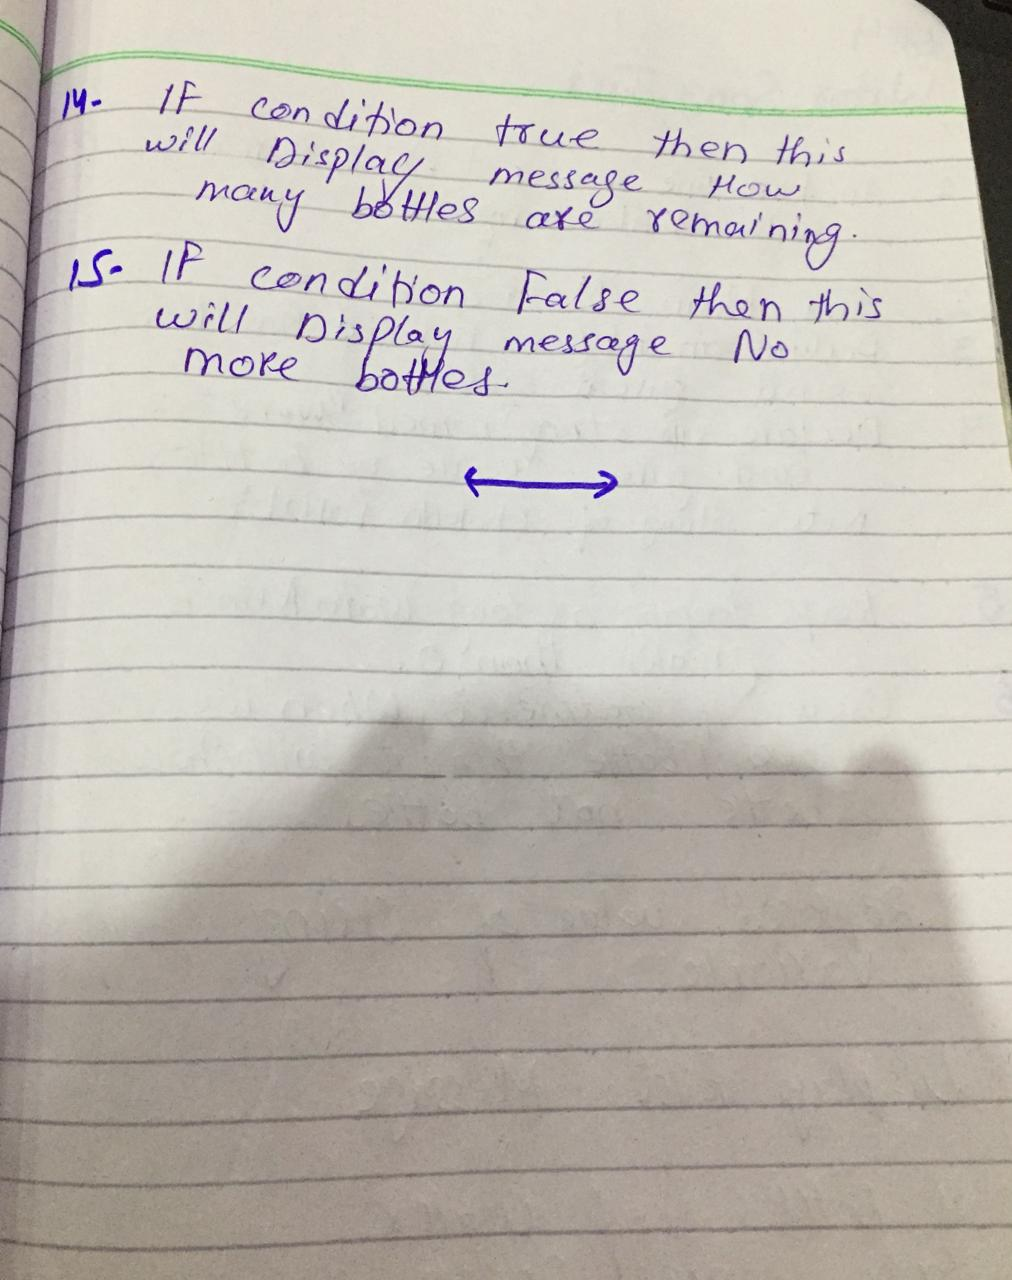 14- IF condition true then this
will Display message How
many bottles are remaining.
15- IF condition False then this
will Display message No
more bottles.